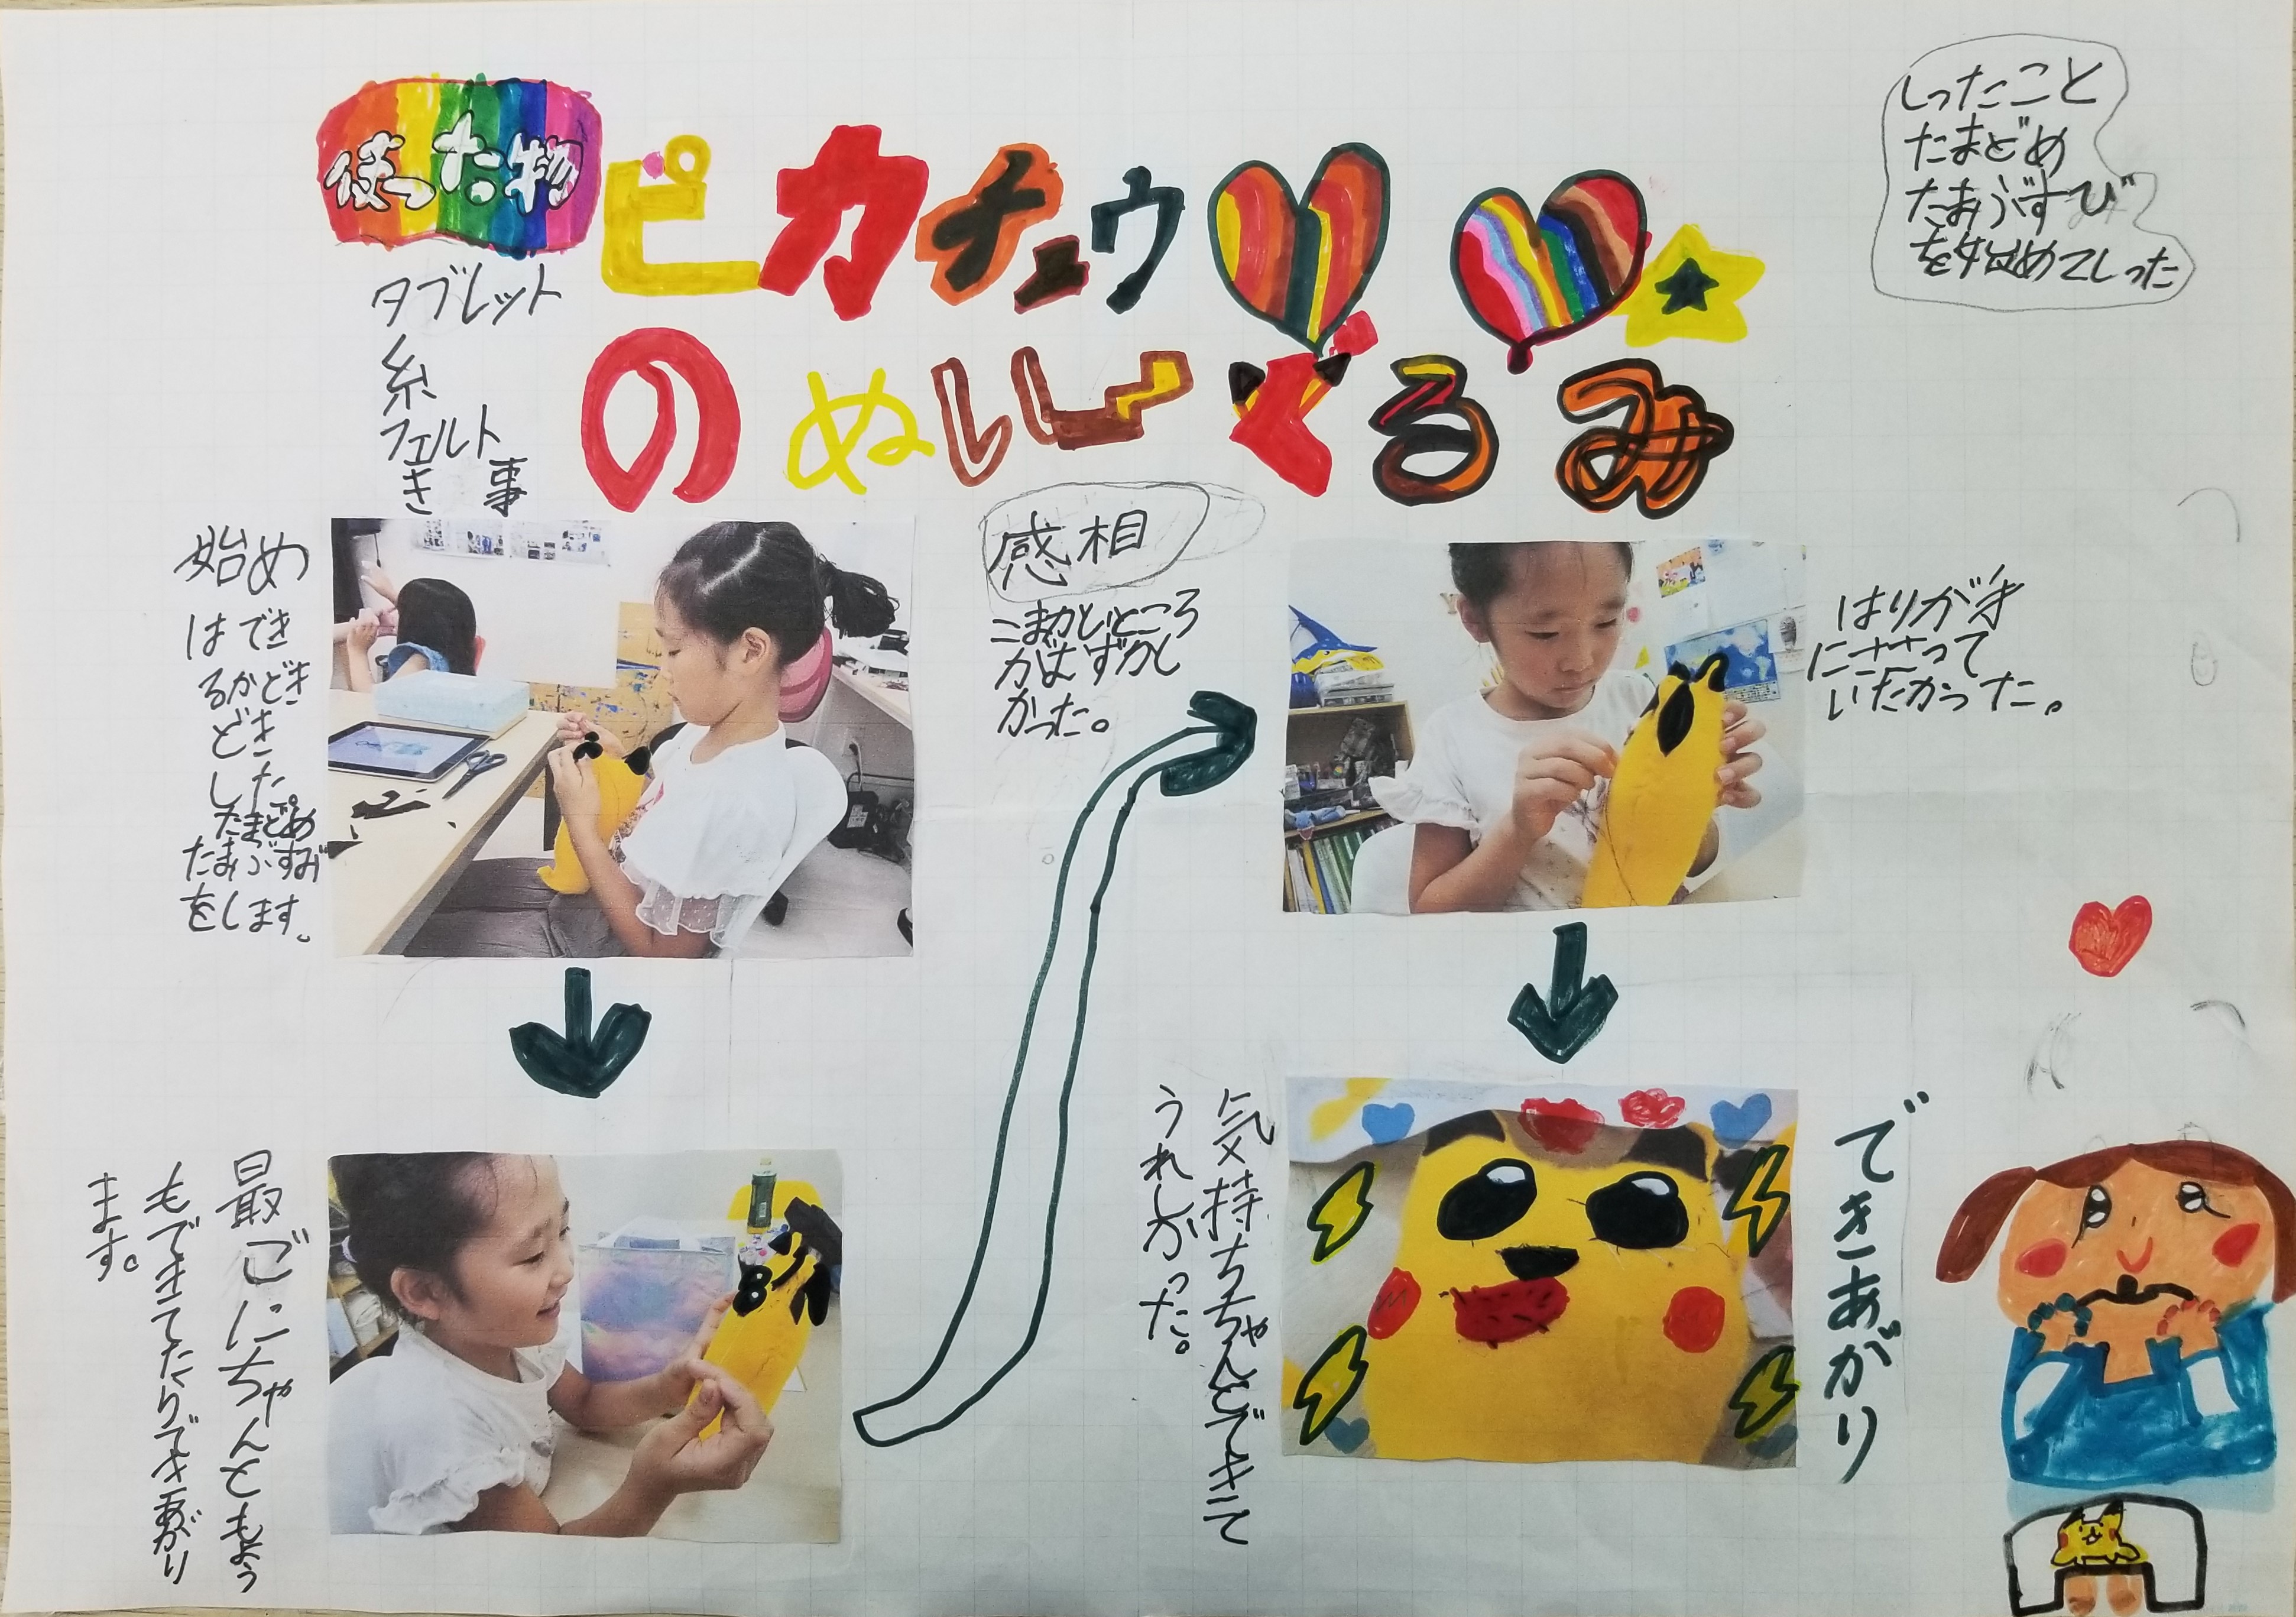 使った物
ピカチュウ
のぬいぐるみ
タブレット
糸
フェルト
き事
しったこと
たまどめ
たまむすび
を始めてしった
始め
はでき
るかどき
どき
した
たまどめ
たまむすび
をします。
感相
こまかいところ
がむずかし
かった。
はりがき
にささって
いたかった。
最ごにちゃんともよう
もできてたらでき
ます。
気持ちちゃんとできて
うれしかった。
できあがり